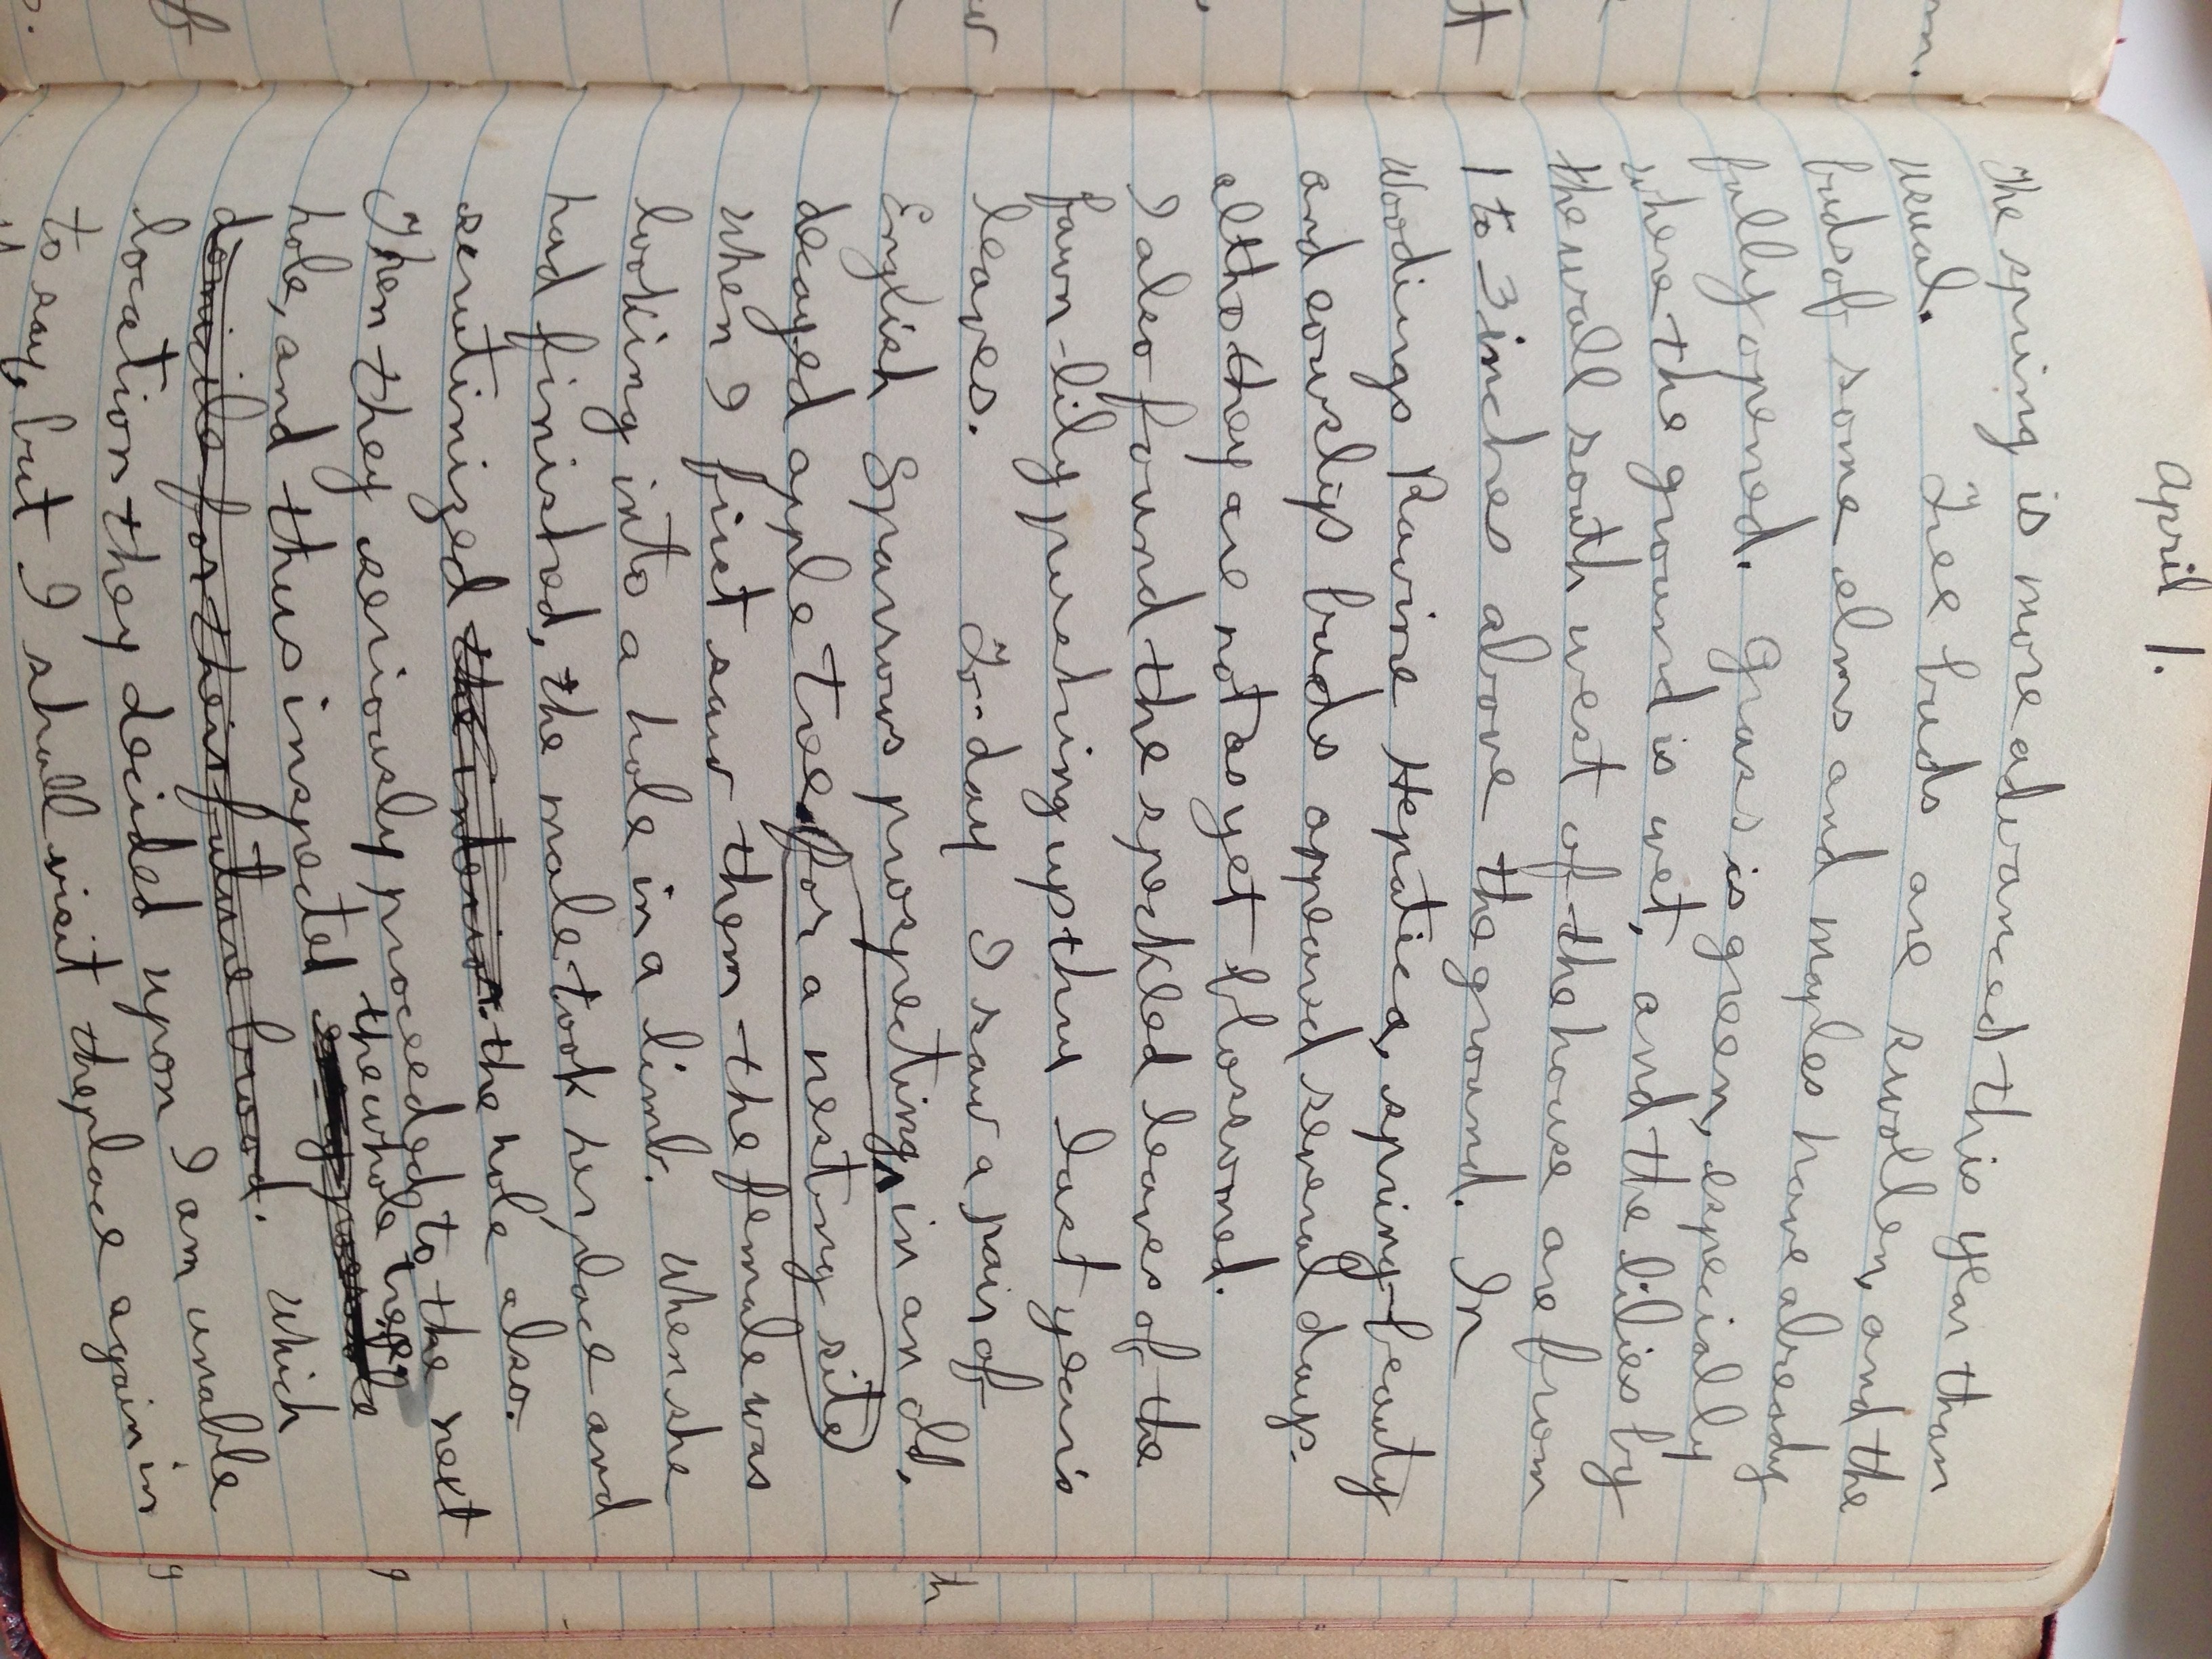 April 1.
The spring is more advanced this year than
usual. Tree buds are swollen, and the
buds of some elms and maples have already
fully opened. Grass is green, especially
where the ground is wet, and the lilies by
the wall south west of the house are from
1 to 3 inches above the ground. In
Woodings Ravine Hepatica, spring-beauty
and cowslips buds appeared several days.
altho they are not as yet blossomed.
I also found the speckled leaves of the
fawn-lily pushing up thru last year's
leaves. To-day I saw a pair of
English Sparrows prospecting, in an old,
decayed apple tree, for a nesting site
when I first saw them - the female was
looking into a hole in a limb. When she
had finished, the male took her place and
scrutinized the interior. the hole also.
Then they seriously proceeded to the next
the whole tree,
hole, and thus inspected
domicile for their future brood. Which
location they decided upon I am unable
to say but I shall visit the place again in